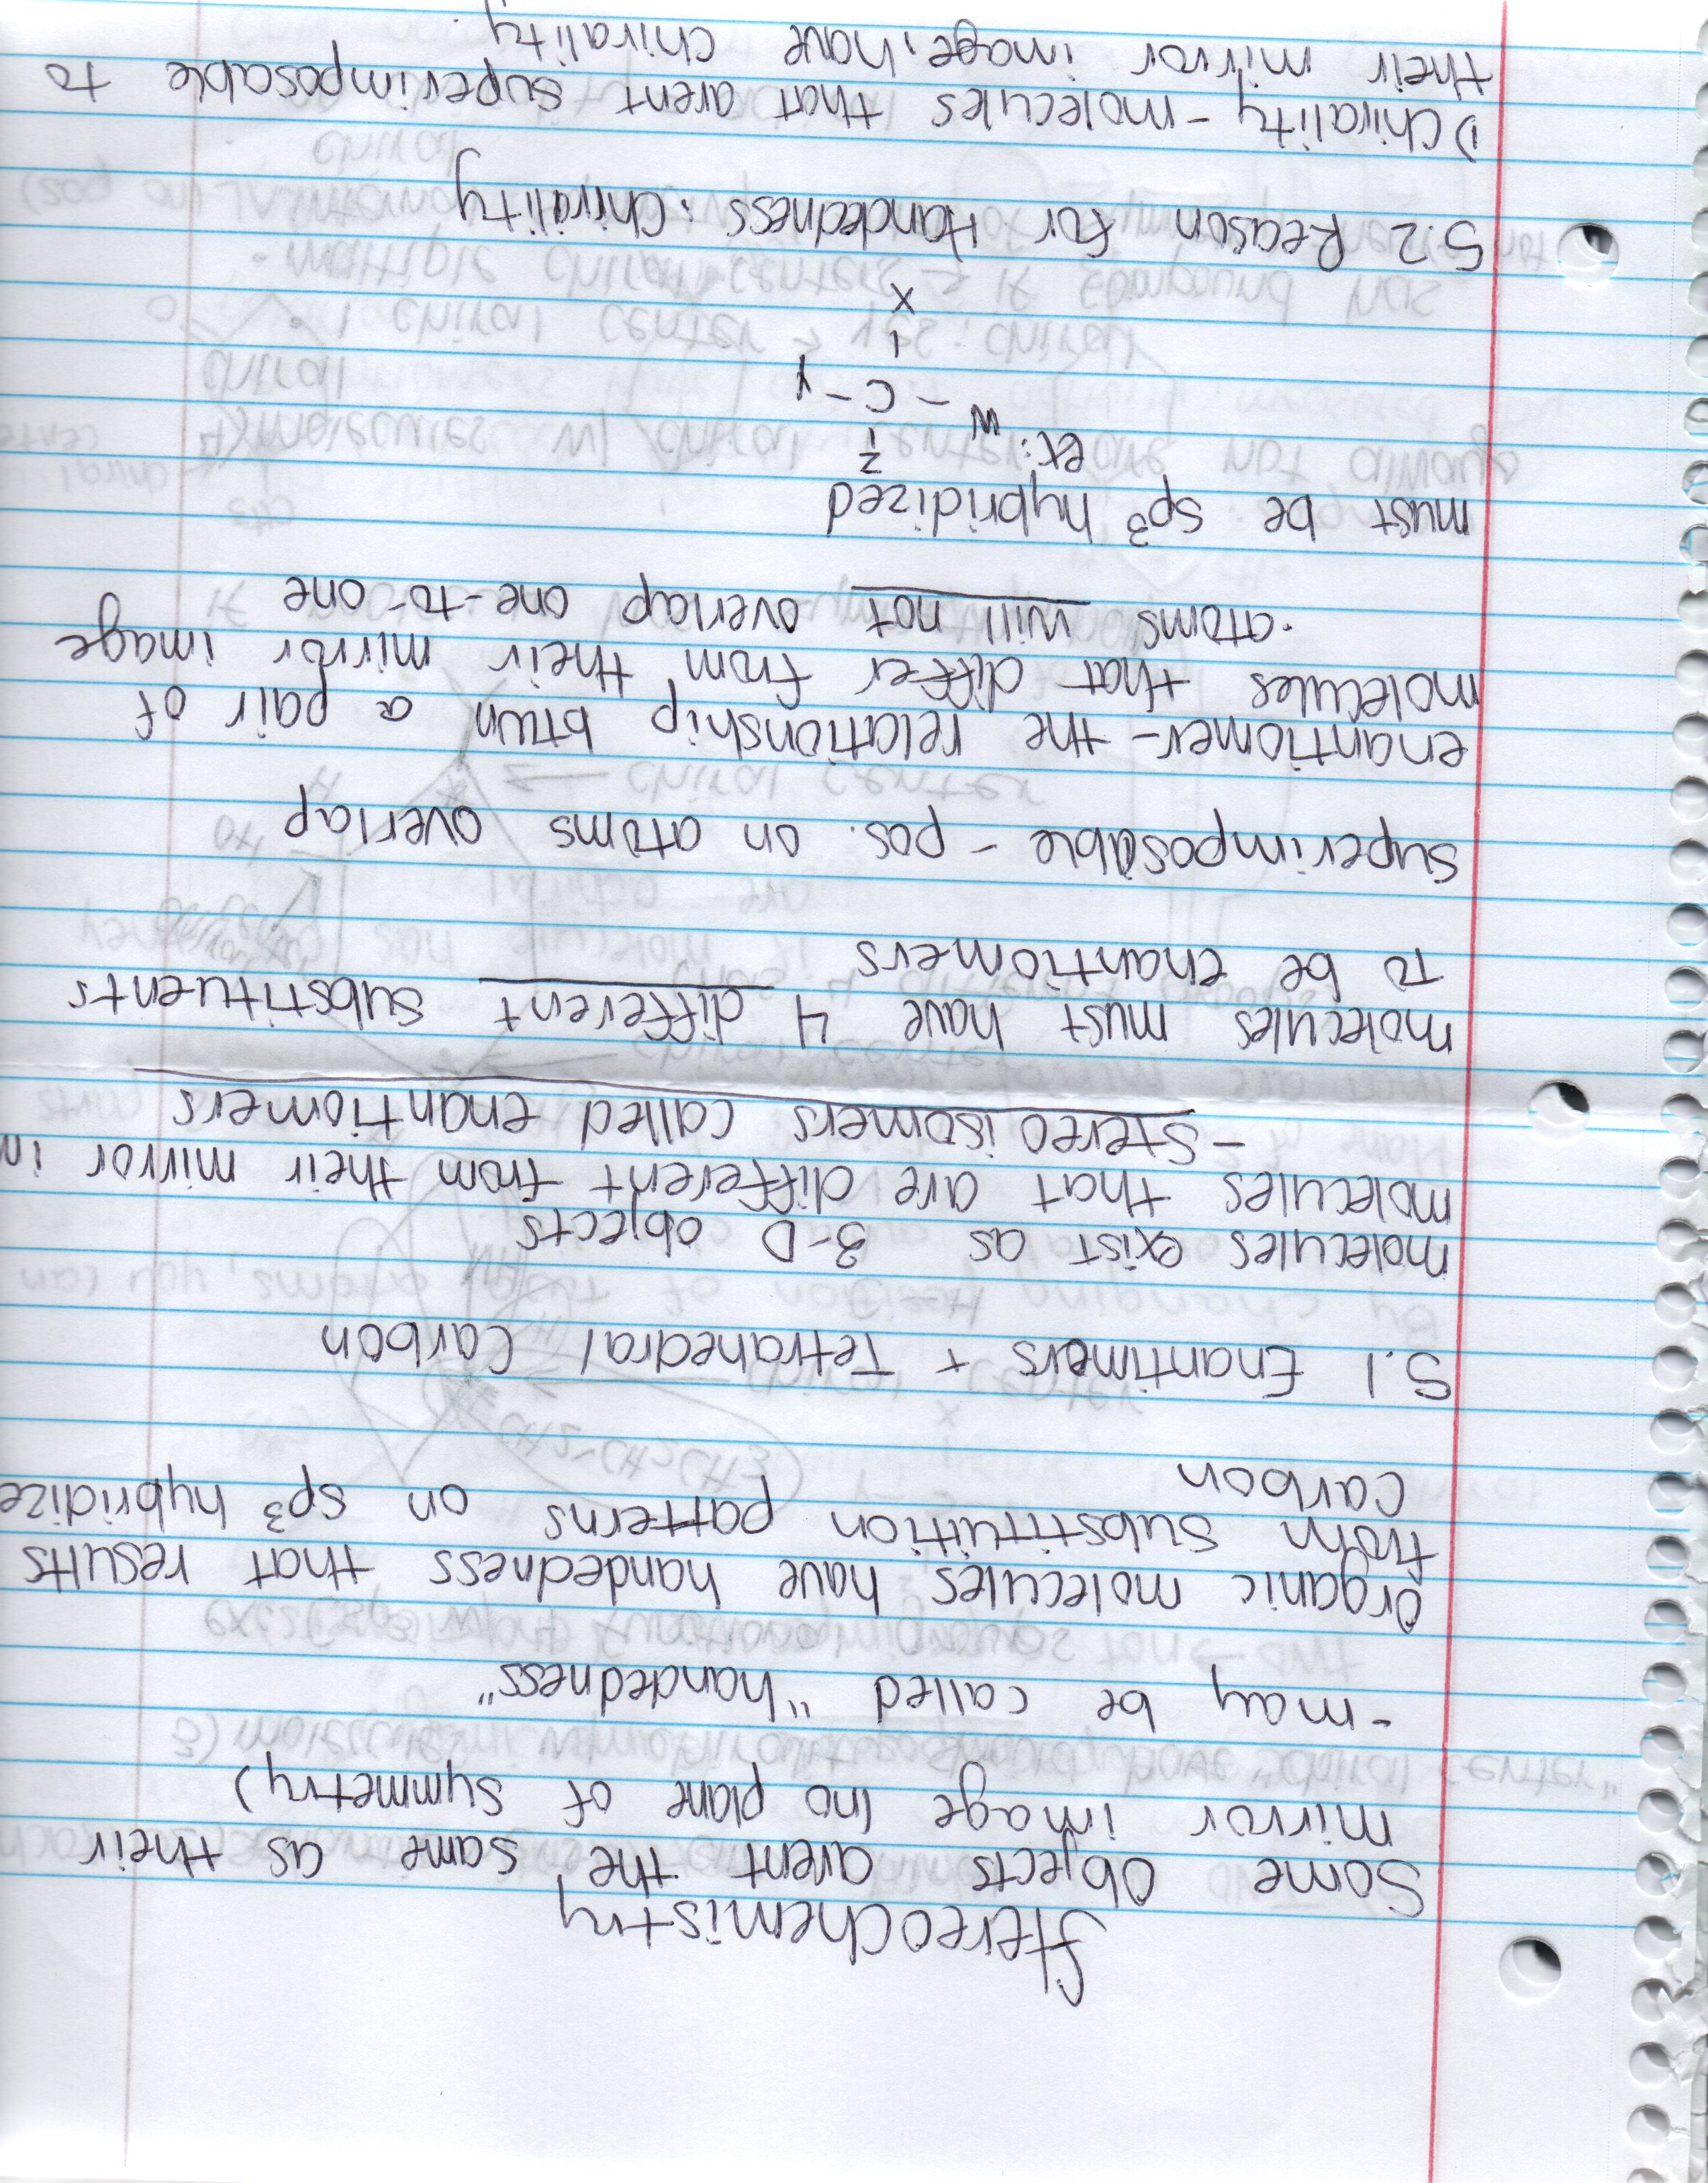 Stereochemistry
Some objects arent the same as their
mirror image (no plane of symmetry)
- may be called "handedness"
organic molecules have handedness that results
from substituition patterns on sp³ hybridize
carbon
5.1 Enantimers + Tetrahedral Carbon
molecules exist as 3-D objects
molecules that are different from their mirror im
- Stereoisomers called enantiomers
molecules must have 4 different substituents
to be enantiomers
superimposable - pos. on atoms overlap
enantiomer - the relationship btwn a pair of
molecules that differ from their mirror image
· atoms will not overlap one-to-one
must be sp³ hybridized
ex: z
W - C - Y
X
5.2 Reason for Handedness: Chirality
1) Chirality - molecules that arent superimposable to
their mirror image, have chirality.